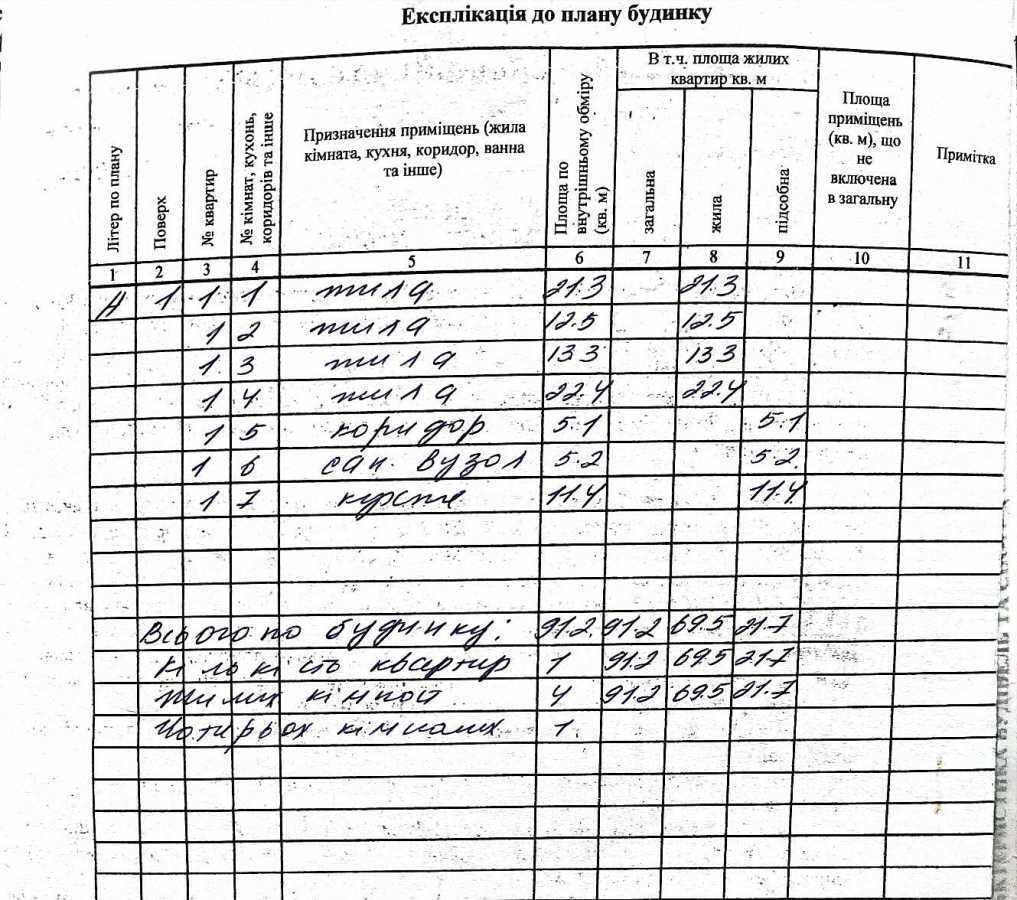 Експлікація до плану будинку
Літер по плану
Поверх
№ квартир
№ кімнат, кухонь, коридорів та інше
Призначення приміщень (жила кімната, кухня, коридор, ванна та інше)
Площа по внутрішньому обміру (кв. м)
В т.ч. площа жилих квартир кв. м
загальна
жила
підсобна
Площа приміщень (кв. м), що не включена в загальну
Примітка
1 2 3 4 5 6 7 8 9 10 11
А 1 1 1 жила 21.3 21.3
1 2 жила 12.5 12.5
1 3 жила 13.3 13.3
1 4 жила 22.4 22.4
1 5 коридор 5.1 5.1
1 6 сан. вузол 5.2 5.2
1 7 кухня 11.4 11.4
Всього по будинку: 91.2 91.2 69.5 21.7
Кількість квартир 1 91.2 69.5 21.7
Жилих кімнат 4 91.2 69.5 21.7
Чотирьох кімнатних 1